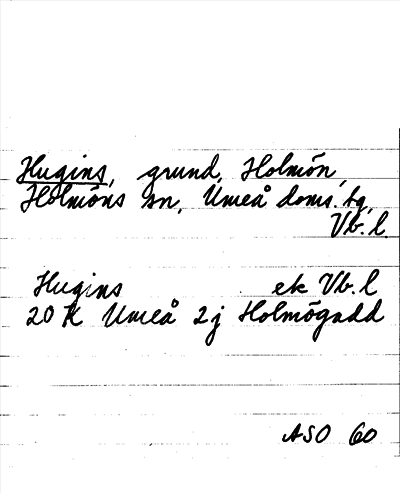 Hugins, grund, Holmön,
Holmöns sn, Umeå doms. tg,
Vb. l.
Hugins ek Vb. l
20 K Umeå 2j Holmögadd
ASO 60